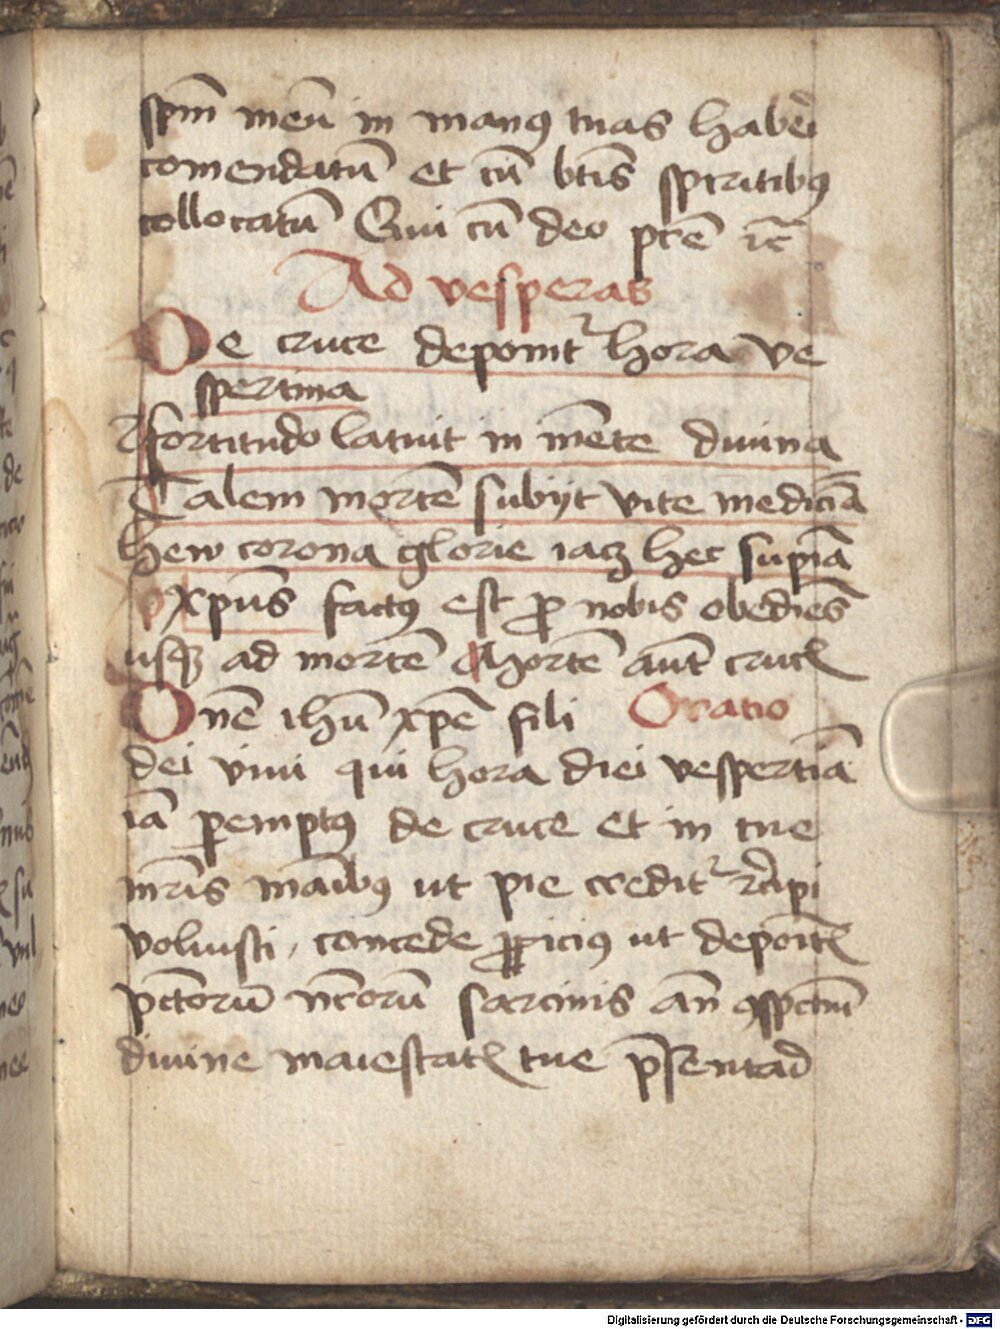 spm̄ meū in manꝰ tuas habe͛
comendatū et cū btīs spiritibꝰ
collocatū Qui cū deo pr̄e ꝛc̄
Ad vesperas
De cruce deponitᷣ hora ve
spertina
fortitudo latuit in mēte diuina
Talem mortē subijt vite mediciā
hew corona glorie iacꝫ hec supīa
xp̄us factꝰ est ꝓ nobis obediēs
usqꝫ ad mortē Mortē aut̄ crucꝭ
Dn̄e ihū xp̄e fili Oratio
dei viui qui hora diei vespertīa
iā ꝑemptꝰ de cruce et in tue
mr̄is maībꝰ ut pie creditᷣ recipi
voluisti, concede ꝓpiciꝰ ut depoītꝭ
pctorū nr̄orū sarcinis an̄ ꝯspectū
diuine maiestatꝭ tue p̄sentad
Digitalisierung gefördert durch die Deutsche Forschungsgemeinschaft - DFG